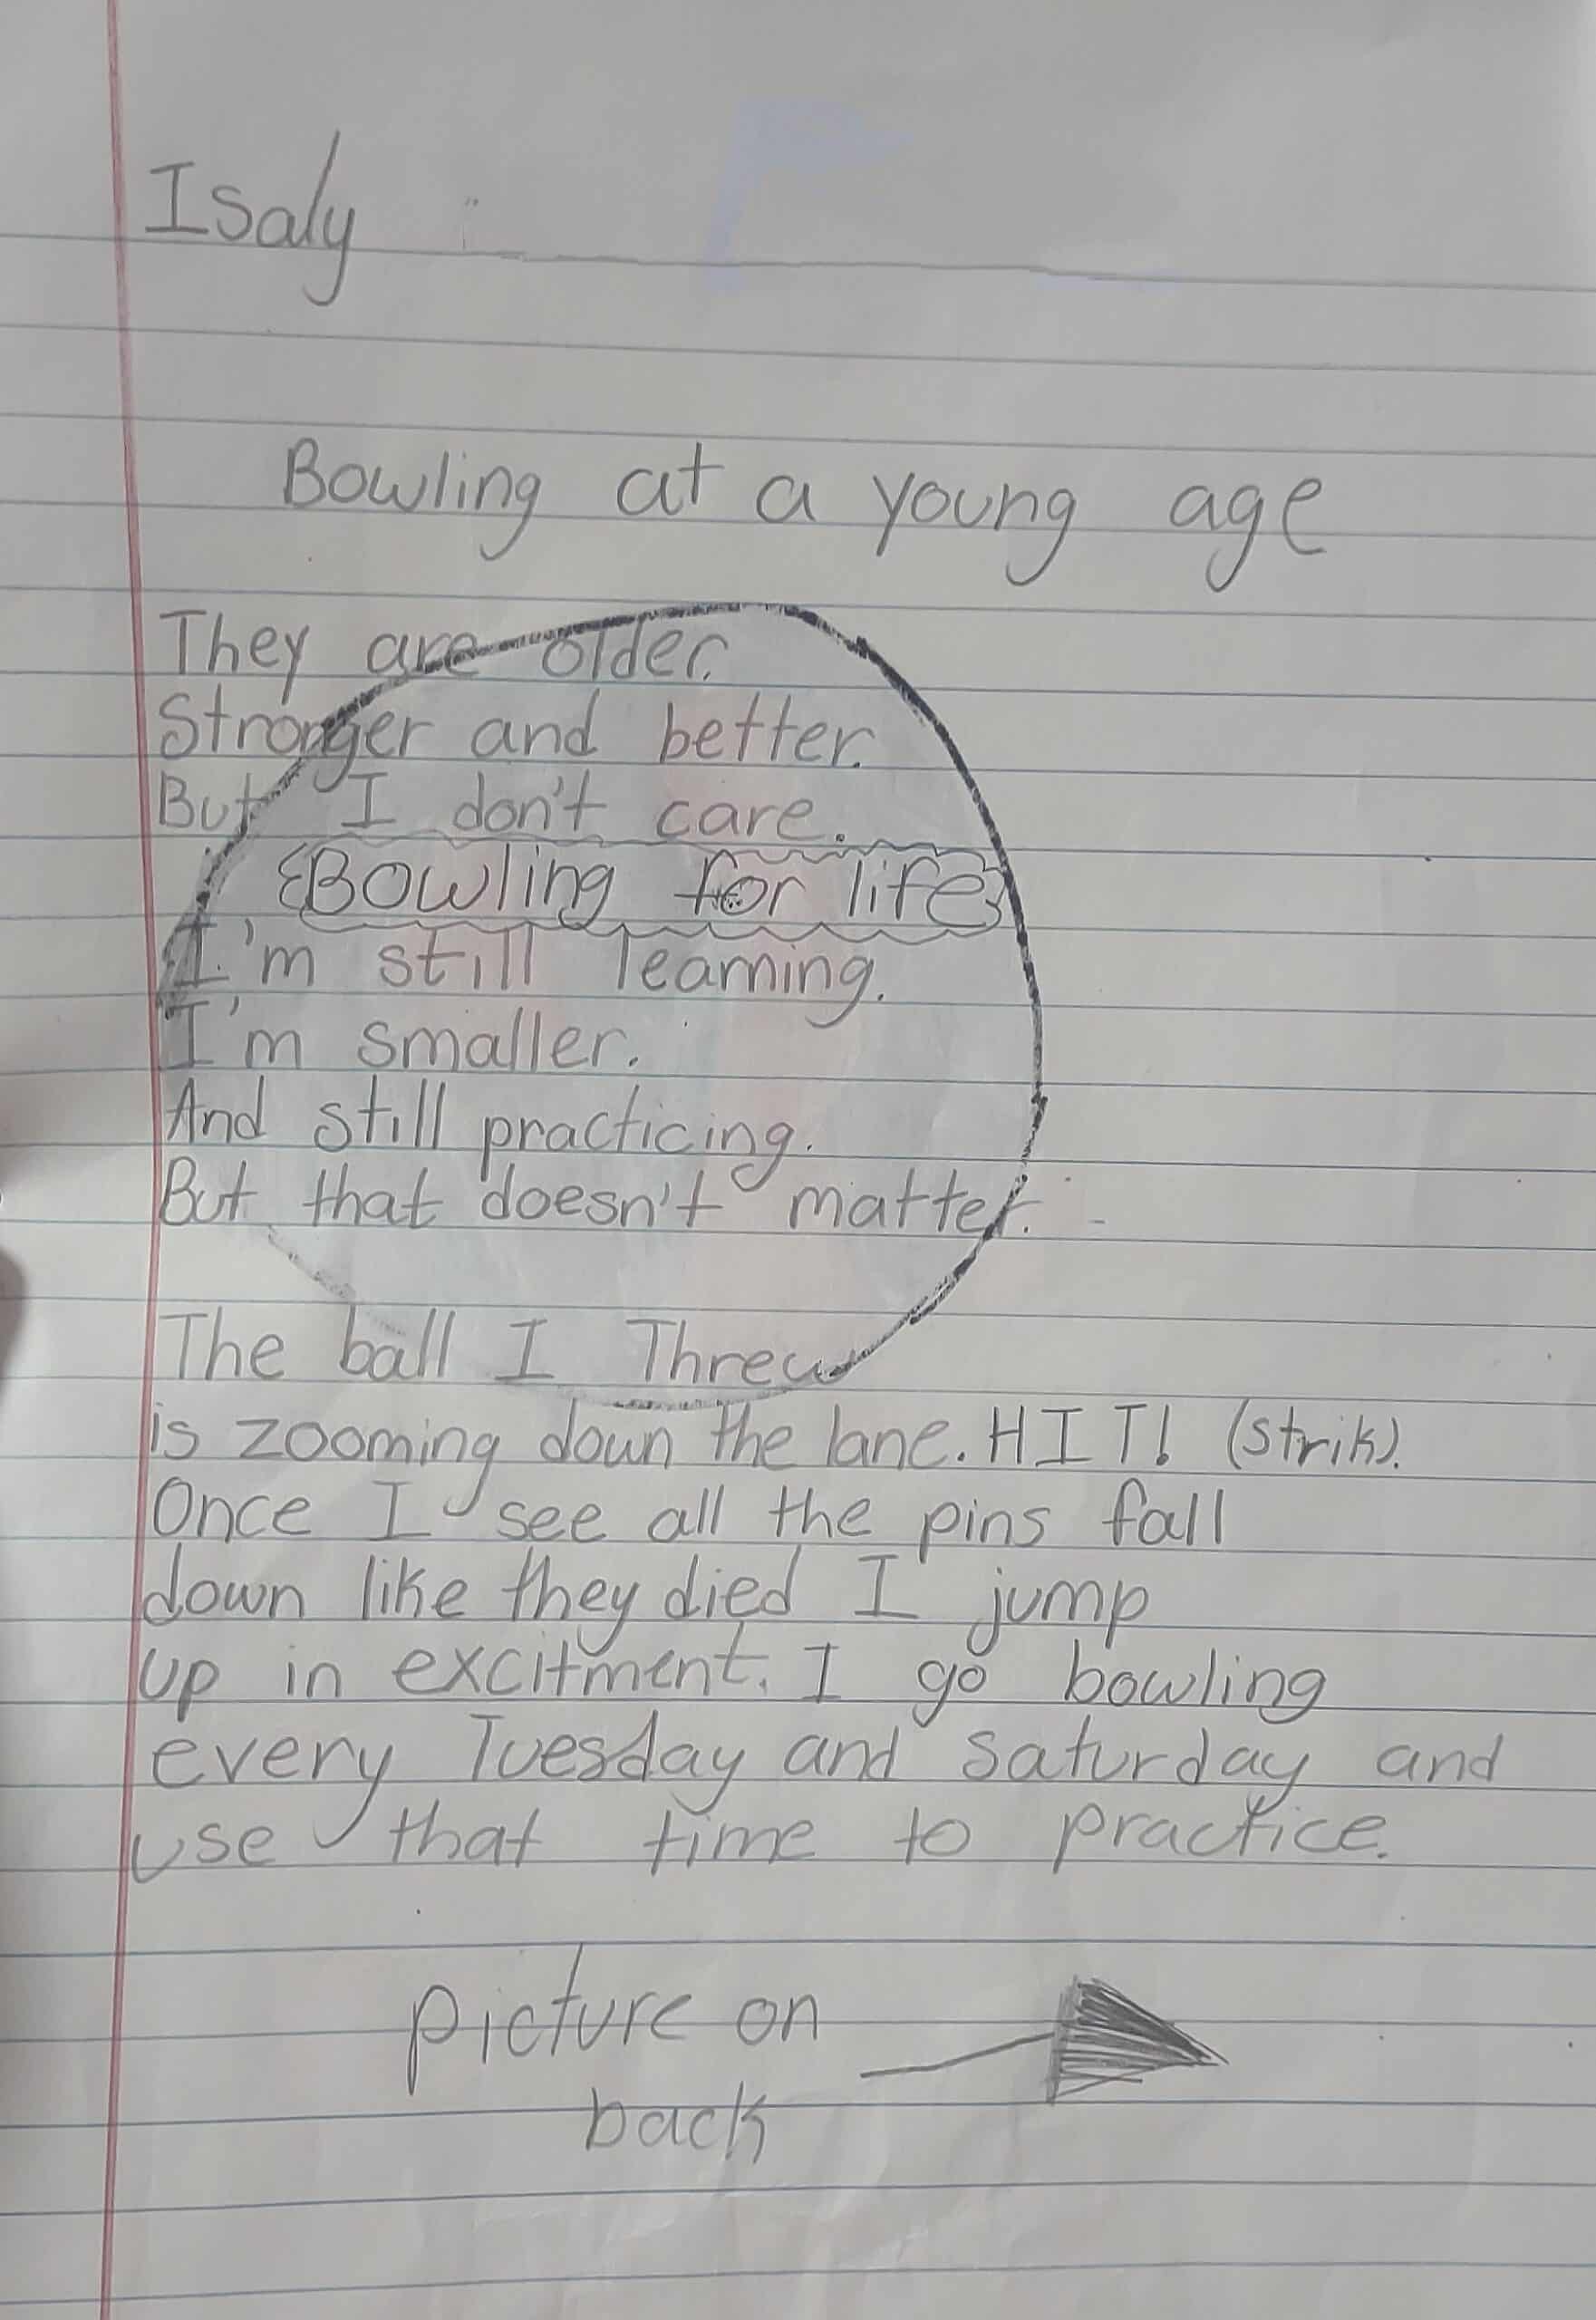 Isaly
Bowling at a young age
They are older.
Stronger and better.
But I don't care.
Bowling for life
I'm still learning.
I'm smaller.
And still practicing.
But that doesn't matter.
The ball I Threw
is zooming down the lane. HIT! (strik).
Once I see all the pins fall
down like they died I jump
up in excitment. I go bowling
every Tuesday and saturday and
use that time to practice.
picture on
back